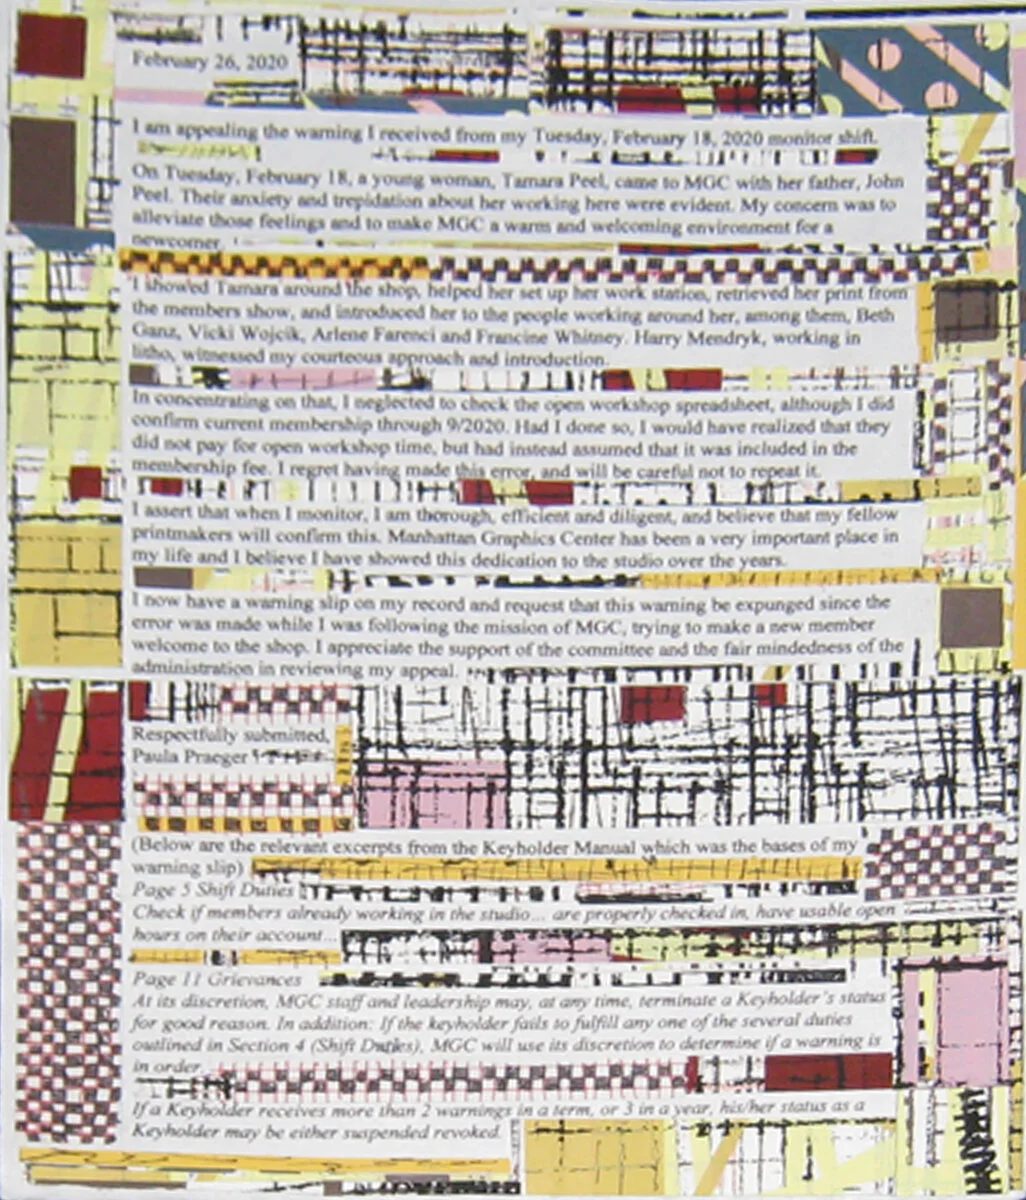 February 26, 2020
I am appealing the warning I received from my Tuesday, February 18, 2020 monitor shift.
On Tuesday, February 18, a young woman, Tamara Peel, came to MGC with her father, John
Peel. Their anxiety and trepidation about her working here were evident. My concern was to
alleviate those feelings and to make MGC a warm and welcoming environment for a
newcomer.
I showed Tamara around the shop, helped her set up her work station, retrieved her print from
the members show, and introduced her to the people working around her, among them, Beth
Ganz, Vicki Wojcik, Arlene Farenci and Francine Whitney. Harry Mendryk, working in
litho, witnessed my courteous approach and introduction.
In concentrating on that, I neglected to check the open workshop spreadsheet, although I did
confirm current membership through 9/2020. Had I done so, I would have realized that they
did not pay for open workshop time, but had instead assumed that it was included in the
membership fee. I regret having made this error, and will be careful not to repeat it.
I assert that when I monitor, I am thorough, efficient and diligent, and believe that my fellow
printmakers will confirm this. Manhattan Graphics Center has been a very important place in
my life and I believe I have showed this dedication to the studio over the years.
I now have a warning slip on my record and request that this warning be expunged since the
error was made while I was following the mission of MGC, trying to make a new member
welcome to the shop. I appreciate the support of the committee and the fair mindedness of the
administration in reviewing my appeal.
Respectfully submitted,
Paula Praeger
(Below are the relevant excerpts from the Keyholder Manual which was the bases of my
warning slip)
Page 5 Shift Duties
Check if members already working in the studio... are properly checked in, have usable open
hours on their account...
Page 11 Grievances
At its discretion, MGC staff and leadership may, at any time, terminate a Keyholder's status
for good reason. In addition: If the keyholder fails to fulfill any one of the several duties
outlined in Section 4 (Shift Duties), MGC will use its discretion to determine if a warning is
in order.
If a Keyholder receives more than 2 warnings in a term, or 3 in a year, his/her status as a
Keyholder may be either suspended revoked.